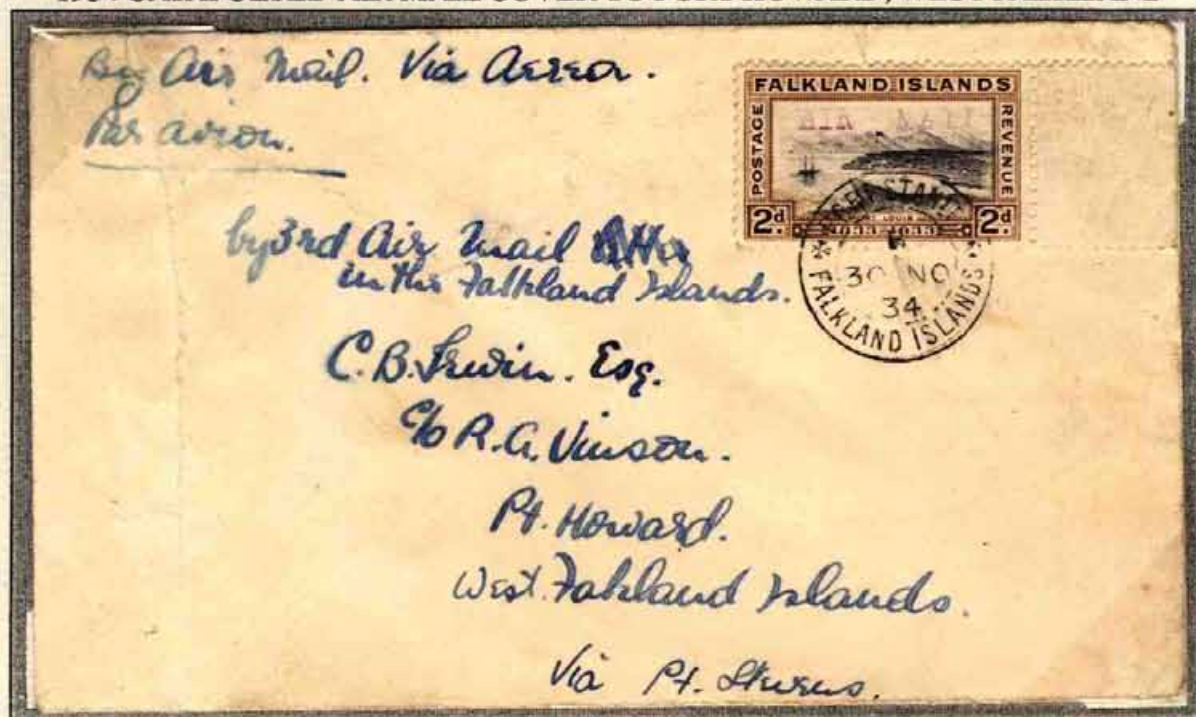 By Air Mail. Via Aerea.
Par avion.
FALKLAND ISLANDS
POSTAGE
REVENUE
AIR MAIL
2d.
2d.
1833-1933
30 NO
34
FALKLAND ISLANDS
by 3rd Air Mail
in the Falkland Islands.
C.B. Irwin. Esq.
c/o R.G. Vinson.
Pt. Howard.
West. Falkland Islands.
Via Pt. Stevens.